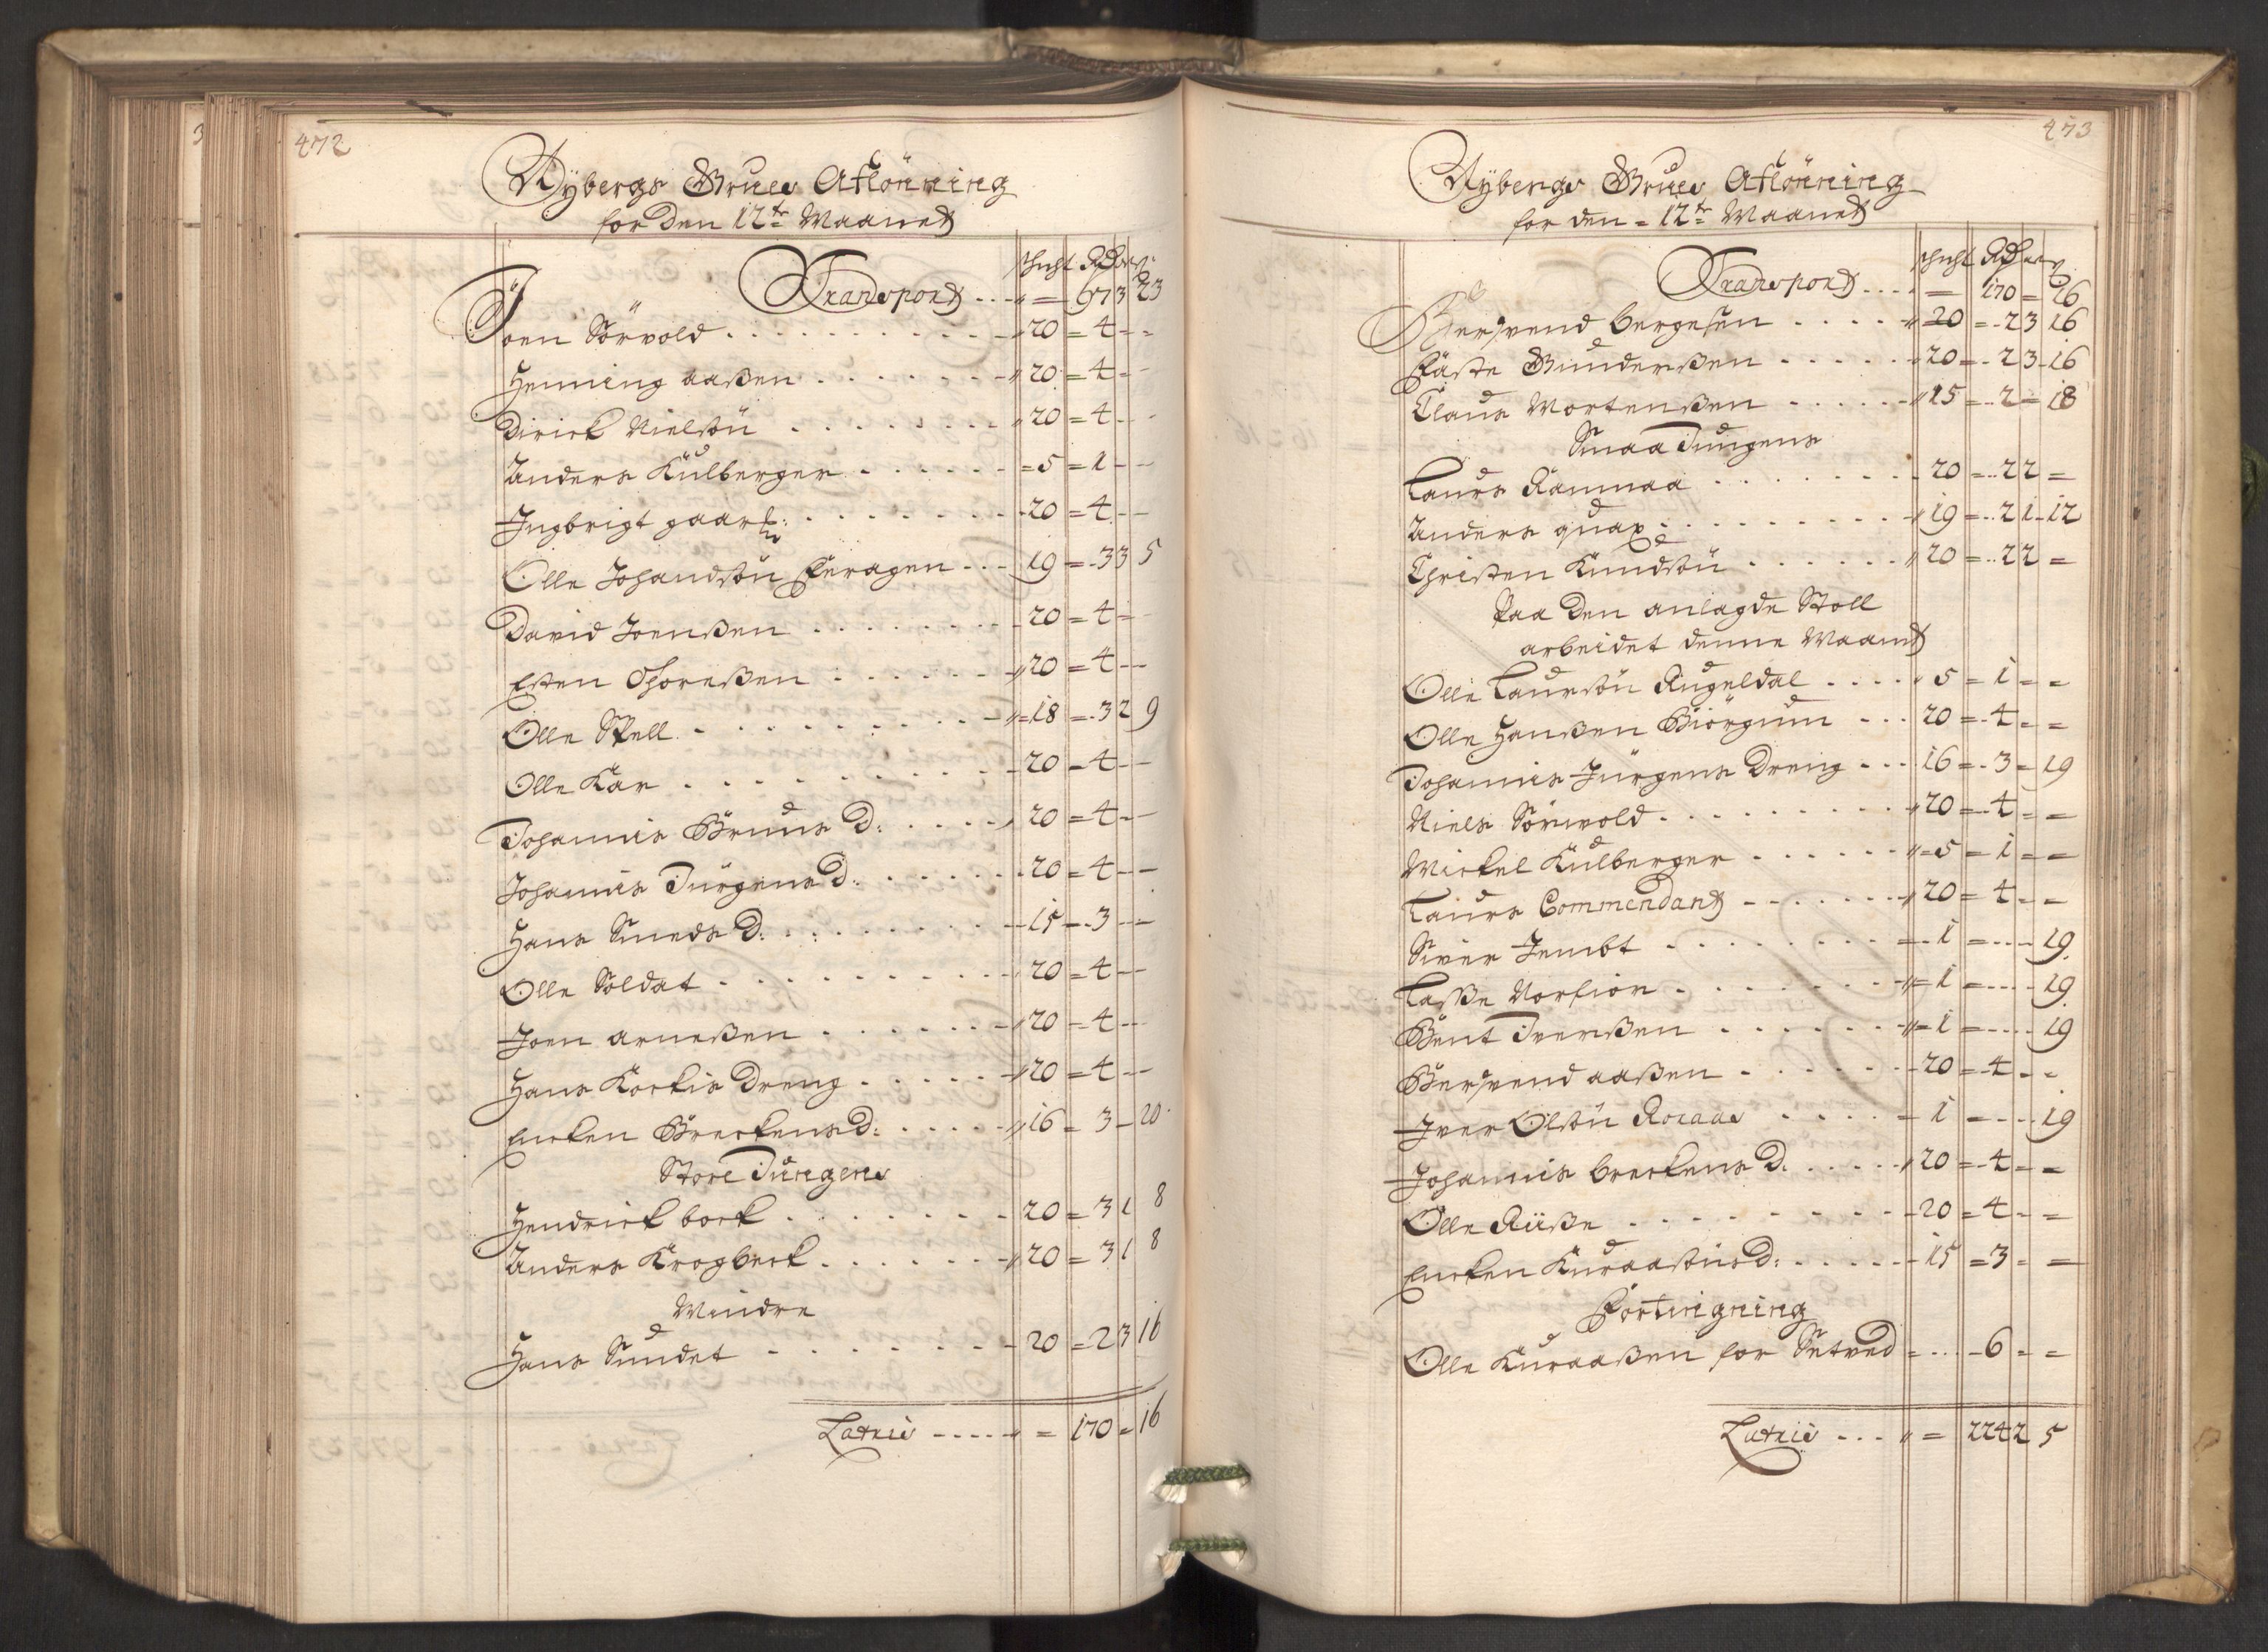 472
Nÿbergs Grues Aflönning
for Den 12te Maanet
Schicht Rdr ort ß
Transport . . . " = 97 3 23
Joen Sörvold . . . " 20 = 4 - -
Henning aaßen . . . " 20 = 4 - -
Dirick Nielsön . . . " 20 = 4 - -
Anders Külberger . . . = 5 = 1 - -
Ingbrigt gaarß: . . . 20 = 4 - -
Olle Johandsön Feragen . . . 19 = 3 3 5
David Joenßen . . . 20 = 4 -
Esten Thoreßen . . . " 20 = 4 - -
Olle Skell . . . " 18 = 3 2 9
Olle Kär . . . 20 = 4 - -
Johannis Bruns D: . . . 20 = 4 - -
Johannis Jürgens D: . . . 20 = 4 - -
Hans Smeds D: . . . 15 = 3 - -
Olle Soldat . . . 20 = 4 - -
Joen arneßen . . . " 20 = 4 - -
Hans Kockis Dreng . . . " 20 = 4 - -
Encken Breckens D: . . . " 16 = 3 - 20
Store Jungens
Hendrick bock . . . 20 = 3 1 8
Anders Krogbeck . . . " 20 = 3 1 8
Mindre
Hans Sundet . . . 20 = 2 3 16
Latris . . . " = 170 = 16
473
Nÿbergs Grues Aflönning
for den = 12te Maanet
Schicht Rdr ort ß
Transport . . . = 170 = 16
Berswend bergesen . . . " 20 = 2 3 16
Fäste Gundersen . . . 20 = 2 3 16
Claus Mortenßen . . . " 15 = 2 = 18
Smaa Jungens
Laurs Rämmaa . . . 20 = 2 2 =
Anders quax . . . " 19 = 2 1 12
Christen Knudsön . . . " 20 = 2 2 =
Paa Den anlagde Stoll
arbeidet denne Maanet
Olle Laursön Rugeldal . . . " 5 = 1 = =
Olle Hanßen Biörgum . . . 20 = 4 = =
Johannis Jürgens Dreng . . . 16 = 3 = 19
Niels Sörwold . . . " 20 = 4 = =
Mickel Külberger . . . " 5 = 1 = =
Laurs Commendant . . . " 20 = 4 = =
Siver Jembt . . . 1 = . . . 19
Laße Norfior . . . " 1 = . . . 19
Bent Iverßen . . . " 1 = . . . 19
Berswend aaßen . . . 20 = 4 = =
Iver Olsön Rocaas . . . 1 = . . . 19
Johannis breckens D: . . . " 20 = 4 = =
Olle Rüße . . . 20 = 4 = =
Encken Kuraasens D: . . . 15 = 3 = =
Fortingning
Olle Kuraaßen for Setved = . . . 6 = =
Latris . . . " = 224 2 5